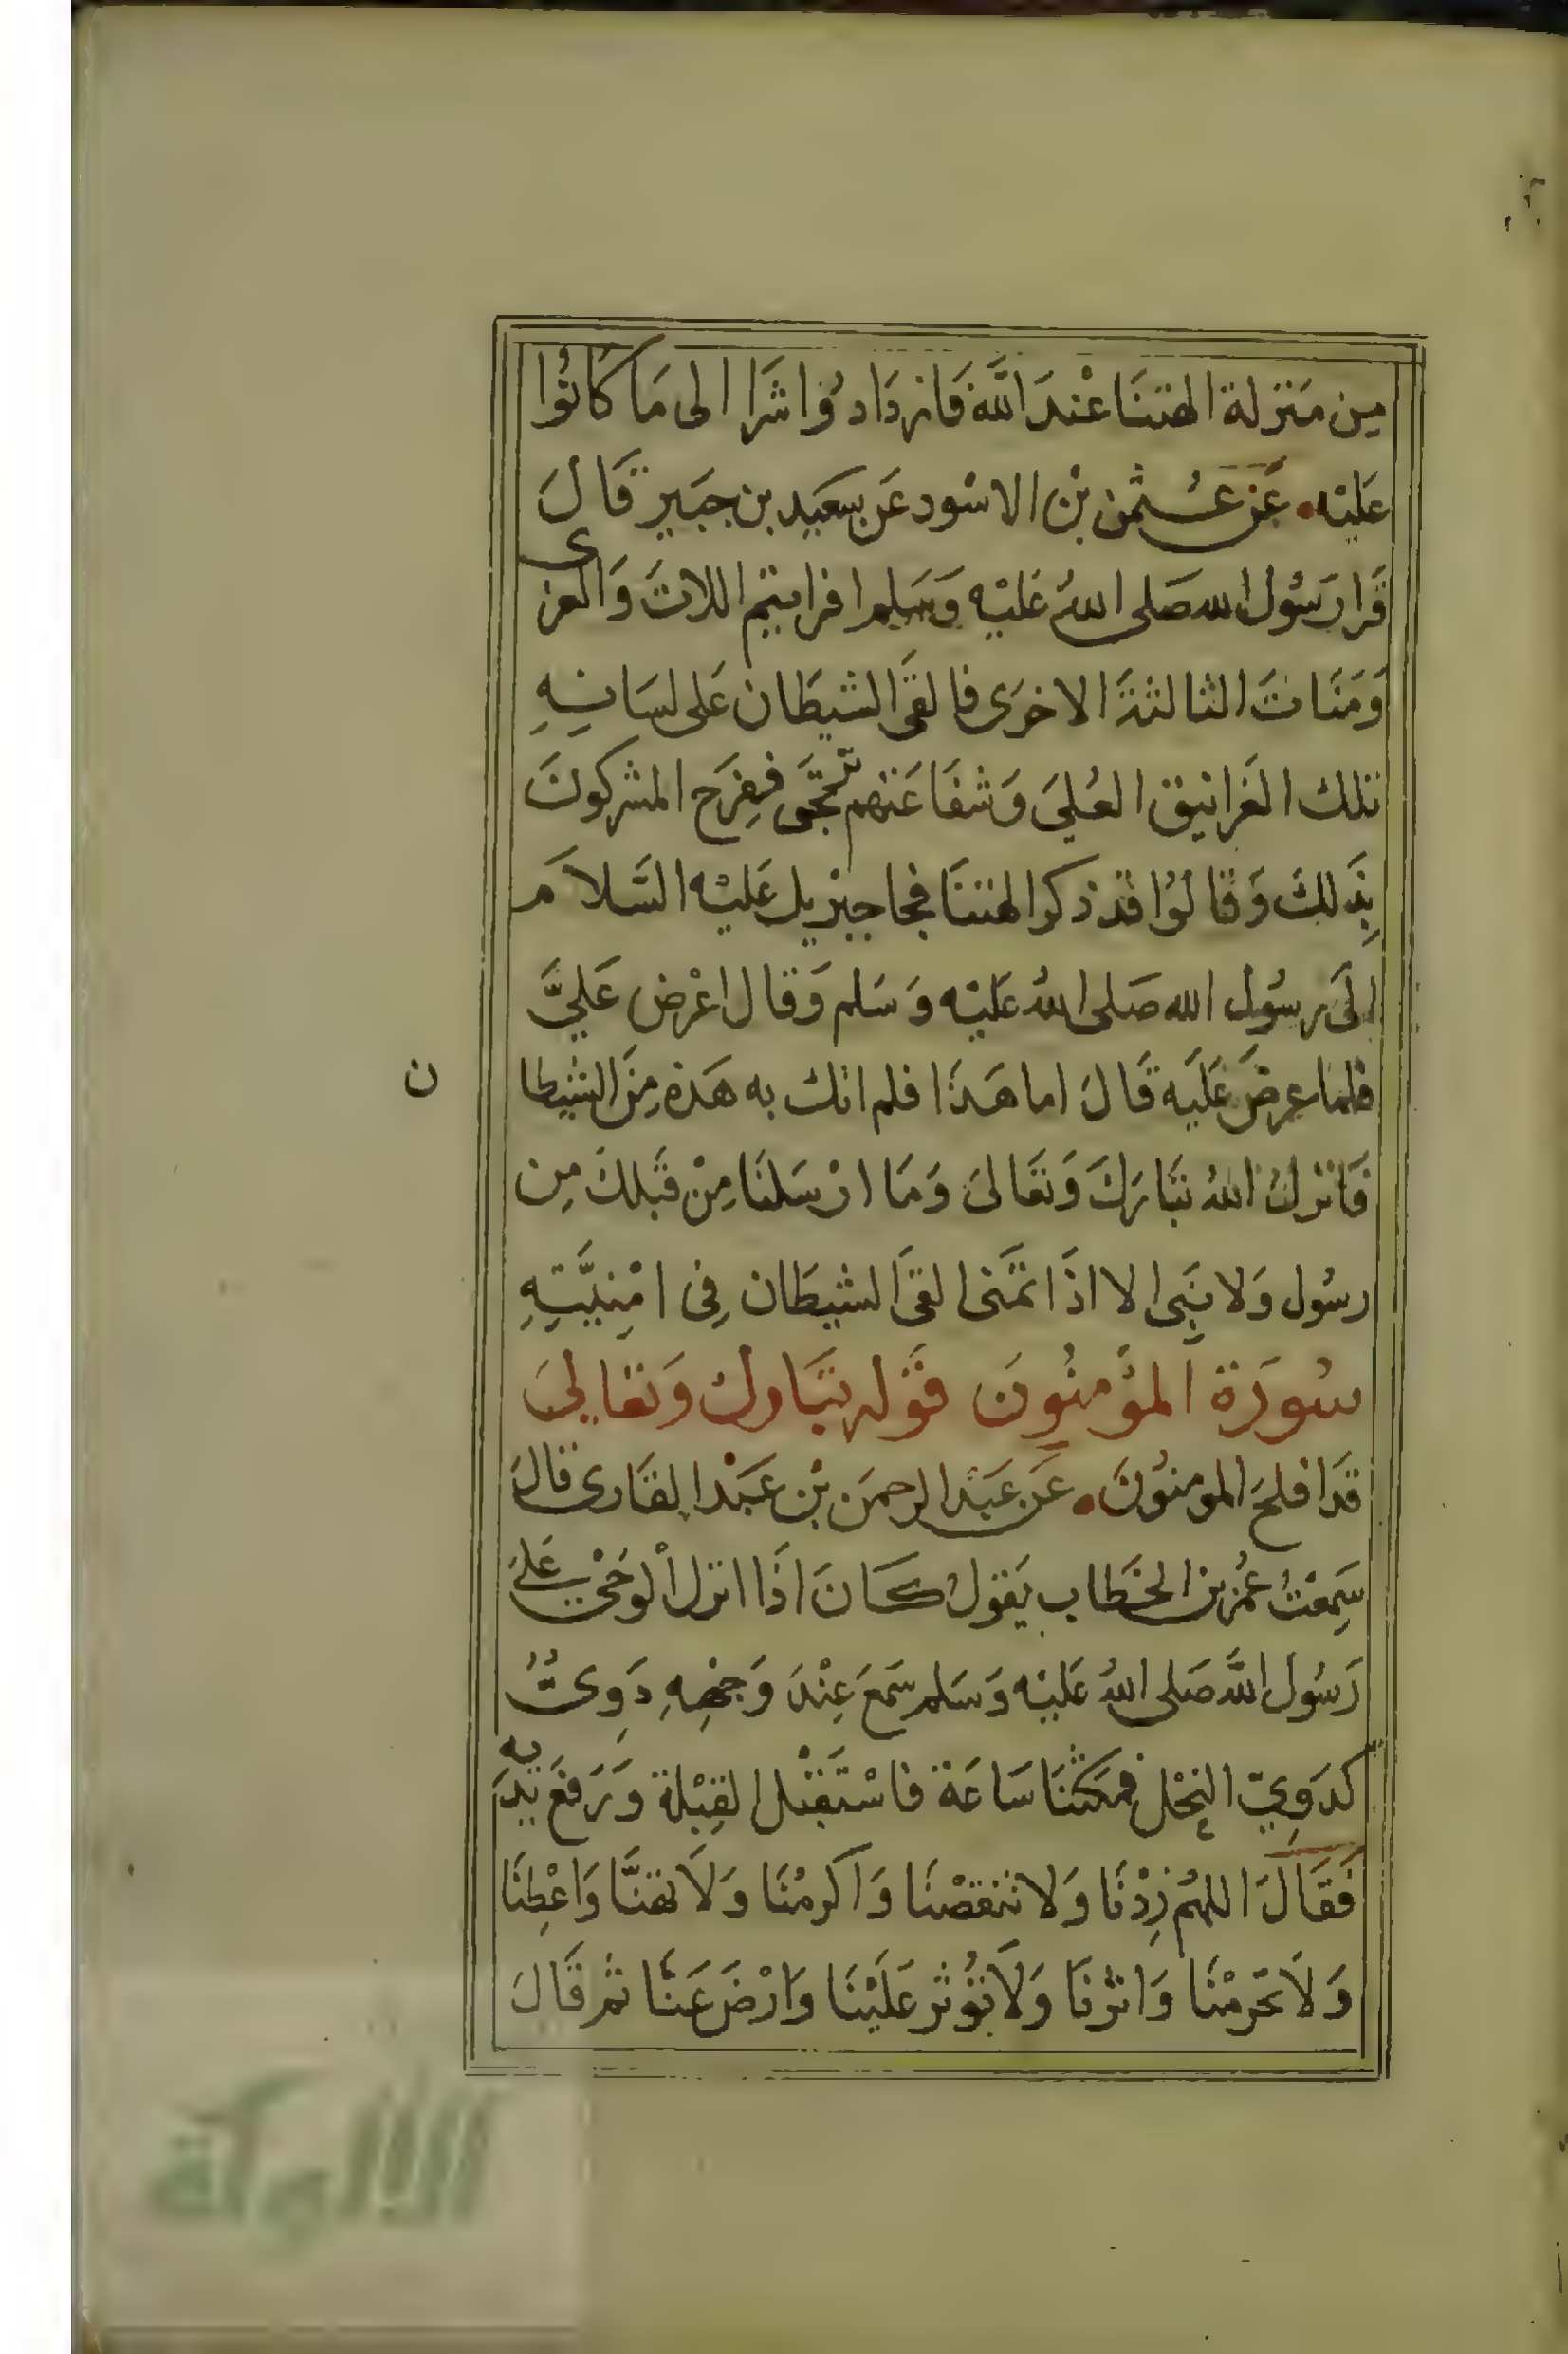 مِن مَنزلة الهتنَا عْندَ اللَّه فَازدَادُوا شَرا الى مَا كَانُوا
عَليْه • عَن عُثمٰن بْن الاسْود عَن سعَيد بن جبَير قَالَ
قَرا رَسُول الله صَلى اللهُ عَليْه وَسَلم افرايتم اللاتَ وَالعزى
وَمَنَاتَ الثالثةَ الاخرَى فالقَى الشيطَان عَلى لسَانِهِ
تلك الغَرانيق العُلىَ وَشفَاعَتهم ترتجَى ففرَح المشركونَ
بذَلكَ وَقالوُا قد ذكرا لهتنَا فجا جبريل عَليْه السَّلاَم
الىَ رسُول الله صَلى اللهُ عَليْه وَسَلم وَقال اعْرض عَليَّ
فلما عرضَ عَلَيه قَالَ اما هَذَا فلم اتك به هَذه مِنَ الشيطان
فَانزلَ اللهُ تبَارَكَ وَتعَالىَ وَمَا ارْسَلنَا مِنْ قَبلكَ مِن
رسُول وَلا نَبِى الا اذَا تمَنى القَى الشيطَان فِى امْنِيَّتِهِ
سُورَة المؤمنُونَ قَوله تبَارك وَتعَاليَ
قَد افلحَ المومنُونَ • عَن عَبْد الرحمَن بْن عَبْد القَارى قالَ
سَمِعْتُ عُمَر بن الخطَاب يَقولُ كَانَ اذَا انزل الْوَحْي عَلىَ
رَسُول اللَّه صَلى اللهُ عَليْه وَسَلم سَمعَ عِنْدَ وَجْهِهِ دَوِىٌّ
كدَوِيّ النحْل فمَكثنَا سَاعَة فاسْتَقْبَل القِبْلة وَرَفعَ يَدَيه
فَقَالَ اللهُم زِدْنَا وَلا تنقصْنَا وَاكرمْنَا وَلاَ تهنَّا وَاعْطِنَا
وَلاَ تحَرمْنَا وَاثرنَا وَلاَ تؤُثر عَلَيْنَا وَارْضَ عَنَّا ثم قَالَ
الألوكة